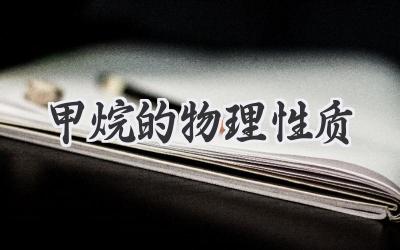 甲烷的物理性质